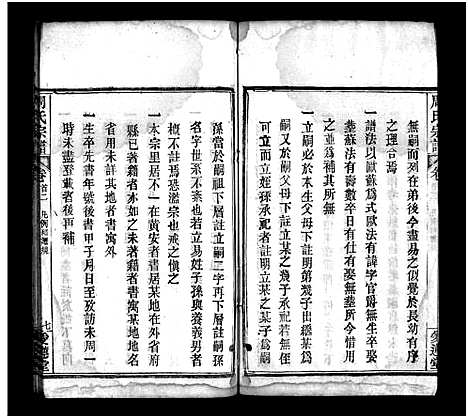 周氏宗譜
無嗣而列在弟後今盡易之似覺於長幼
之理合焉
一譜法以歐蘇爲式歐法有諱字官爵無生卒娶
塟蘇法有壽數卒日有仕有娶無塟所今惜用
之並爲補其所無
一立嗣必於本生父母下註明弟幾子出繼某爲
嗣又於嗣父母下註立某之幾子承祀若無嗣
可立而立姪孫承祀者註明立某之子某之幾
愛蓮堂
周氏宗譜
卷首二
凡例
七
愛蓮堂
孫當於嗣祖下層註立嗣二字再下層註嗣孫
名字世系不紊也若立易姓子孫與養義男者
槪不註焉恐濫宗也戒之愼之
一本宗里居不一在黃安者書居某地在外省府
縣已著籍者亦如之未著籍者書寓某地地名
省用未註其地者書寓外
一生卒先書年號後書甲子月日至攷訪未周一
時未盡登載者後再補